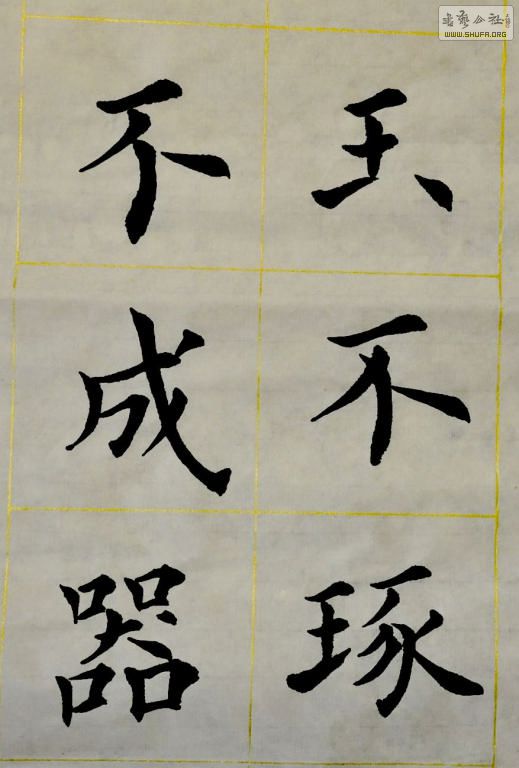 玉不琢
不成器
書藝公社
WWW.SHUFA.ORG